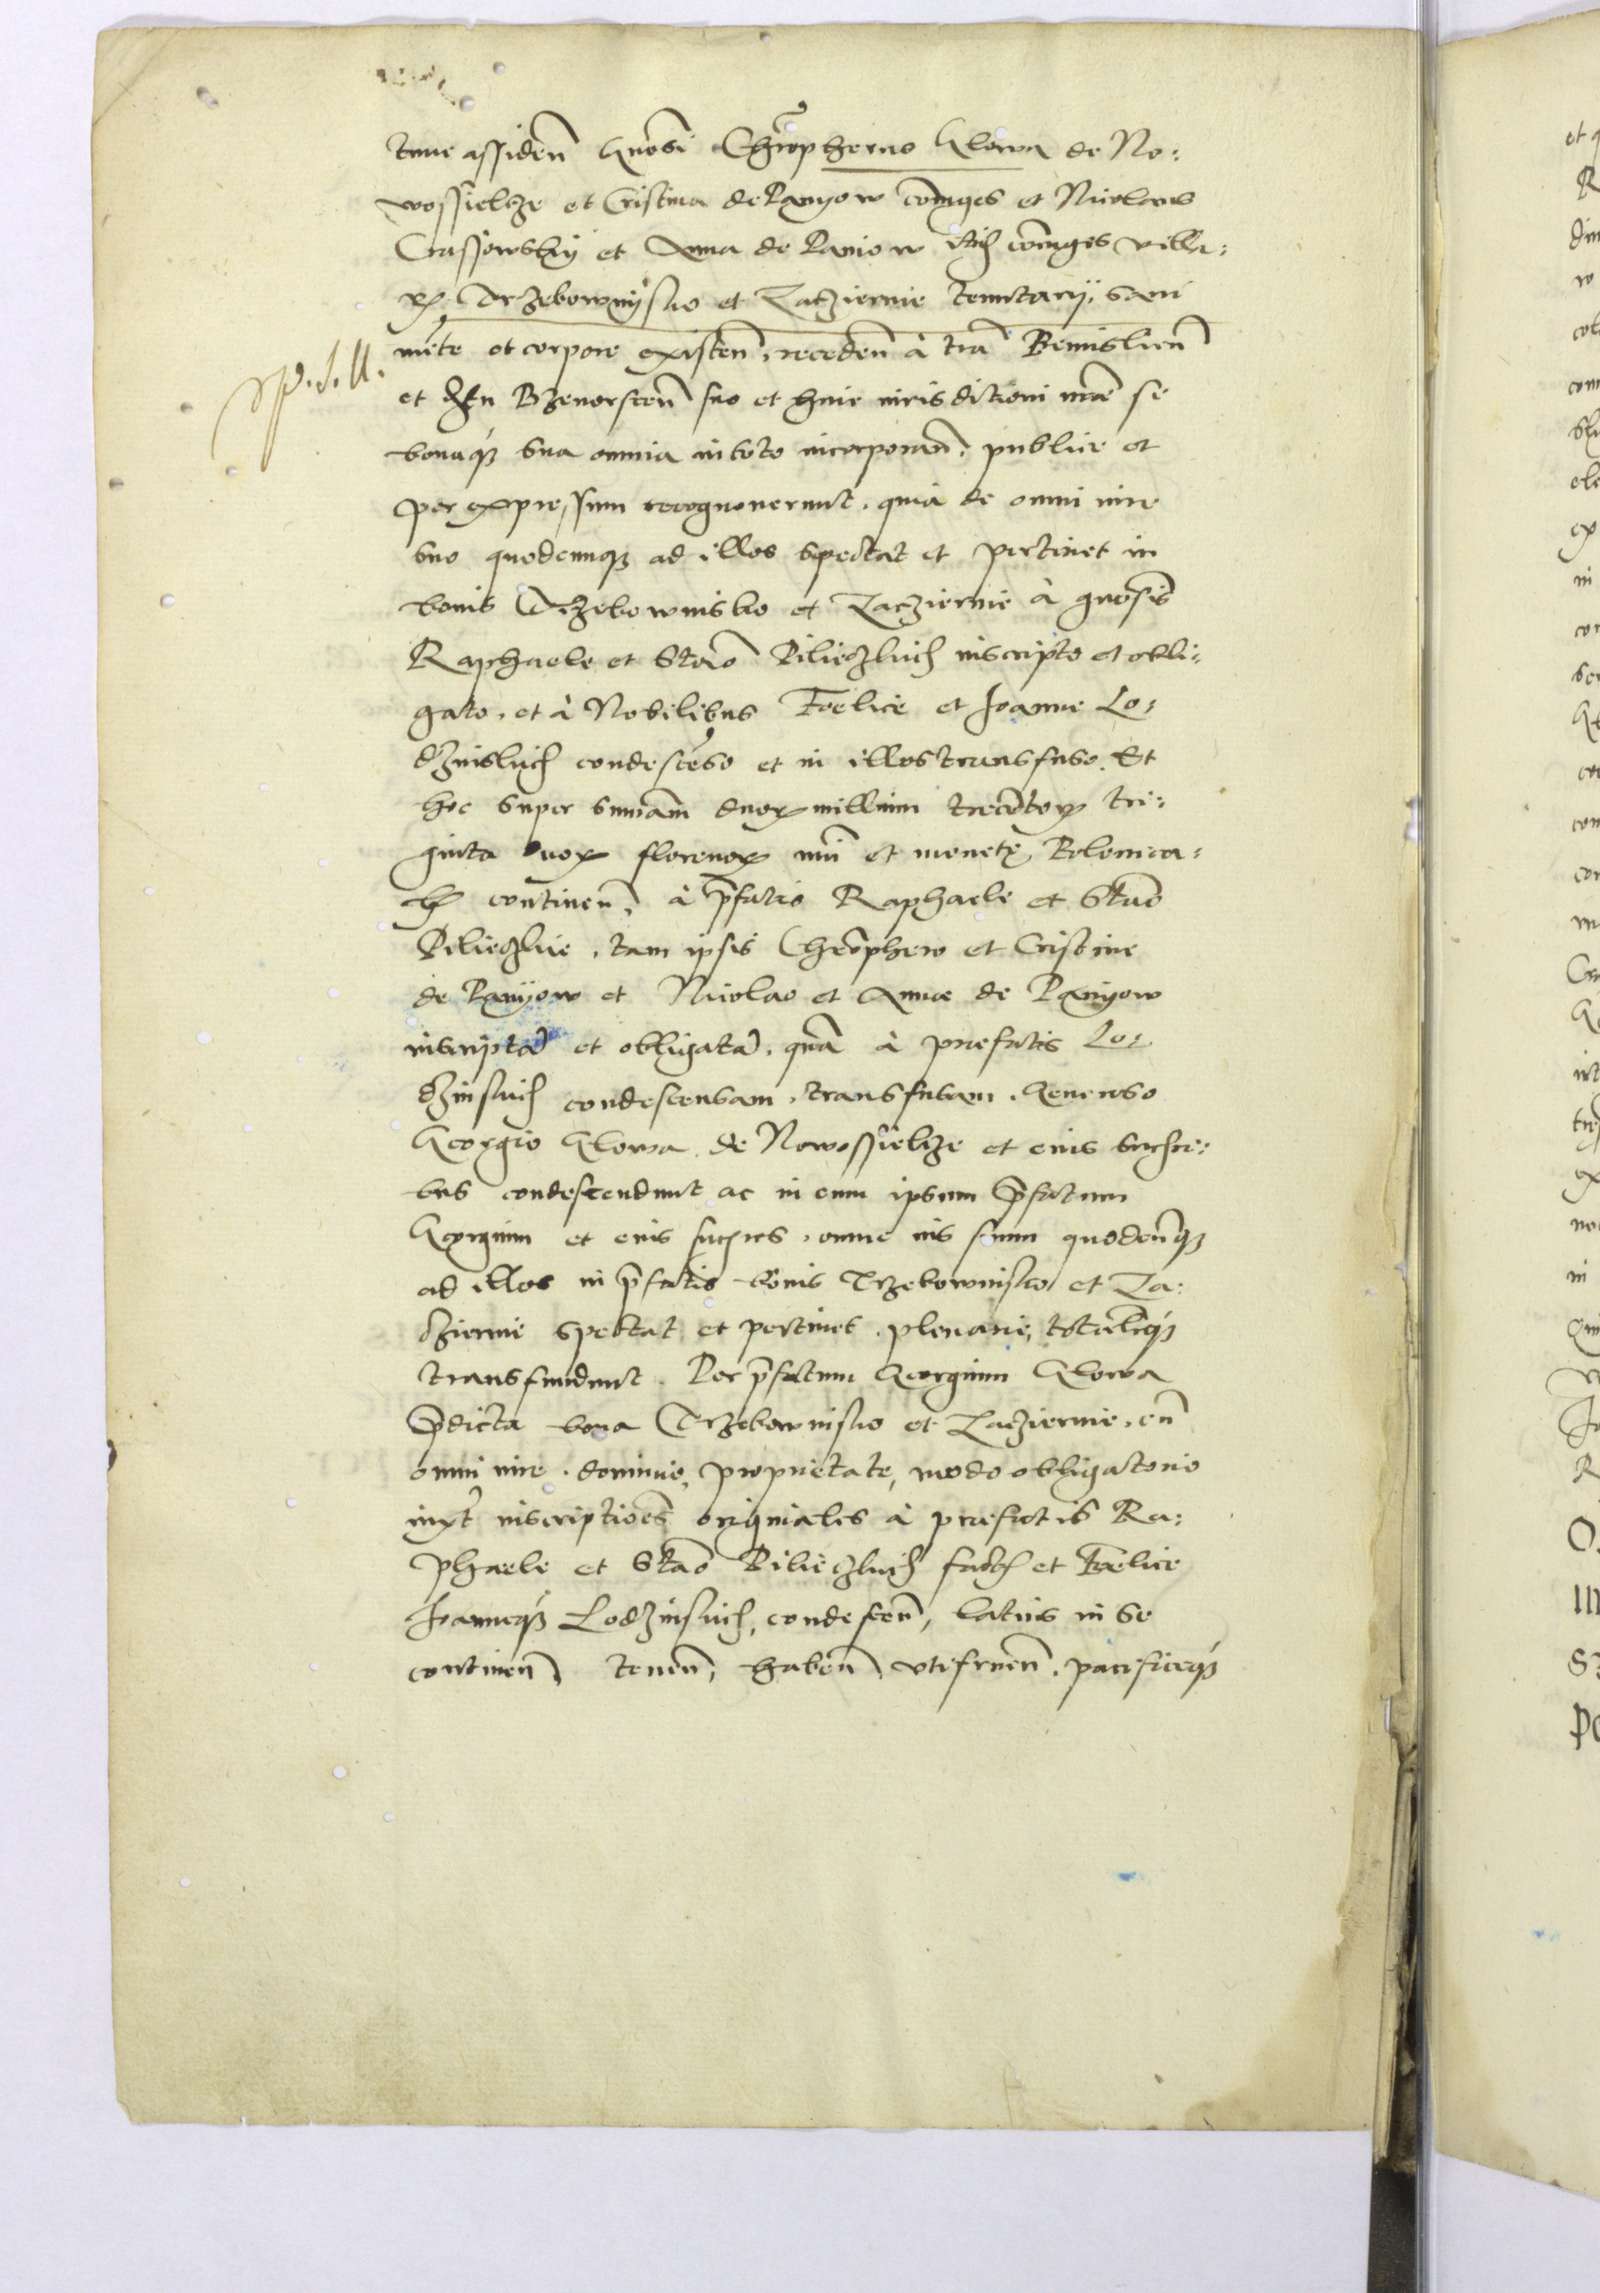 tune assiden Gnosi Christopherus Glowa de No:
wossieltze et Cristina de Panyow coniuges et Nicolaus
Crassowskij et Anna de Paniow etiam coniuges villa:
rum Trzebownijsko et Zacziernie tenutarij, sani
mente et corpore existen, receden à tra Premislien
et Przeworscen suo et huic iurisdictioni me se
bonaque sua omnia in toto incorporan, publice et
per expressum recognouerunt, quia de omni iure
suo quodcunque ad illos spectat et pertinet in
bonis Trzebownisko et Zacziernie à gnosis
Raphaele et Stano Pilieczkich inscripto et obli:
gato, et à Nobilibus Foelice et Joanne Lo:
dzinskich condescenso et in illos transfuso. Et
hoc super summam duorum millium trecentorum tri:
ginta duorum florenorum nri et monete Polonica:
lis continen, à prefatis Raphaele et Stano
Pilieczkie, tam ipsis Christophero et Cristine
de Panijow et Nicolao et Annae de Panyow
inscriptam et obligatam, quam à praefatis Lo:
dzinskich condescensam, transfusam, Generoso
Georgio Glowa de Nowossieltze et eius succesori:
bus condescendunt ac in eum ipsum prefatum
Georgium et eius succesores, omne ius suum quodcunque
ad illos in prefatis bonis Trzebownisko et Za:
cziernie spectat et pertinet, plenarie, totaliterque
transfundunt. Per prefatum Georgium Glowa
predicta bona Trzebownisko et Zacziernie, cum
omni iure, dominio, proprietate, modo obligatorio
iuxta inscriptiones originales à praefatis Ra:
phaele et Stano Pilieczkich factas et Foelice
Joanneque Lodzinskich, condescen, latius in se
continen, tenen, haben, utifruen, pacificeque